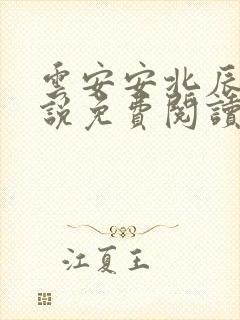 雲安安北辰
說免費閱讀
江夏王